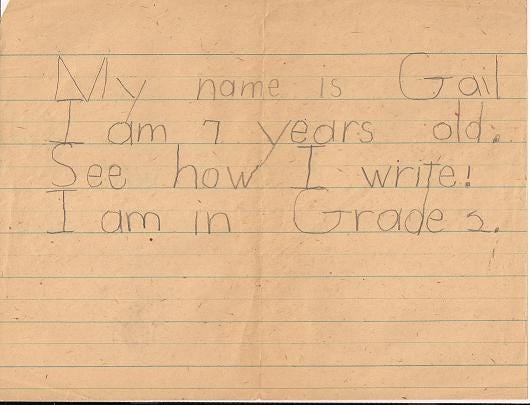 My name is Gail
I am 7 years old.
See how I write!
I am in Grade 2.